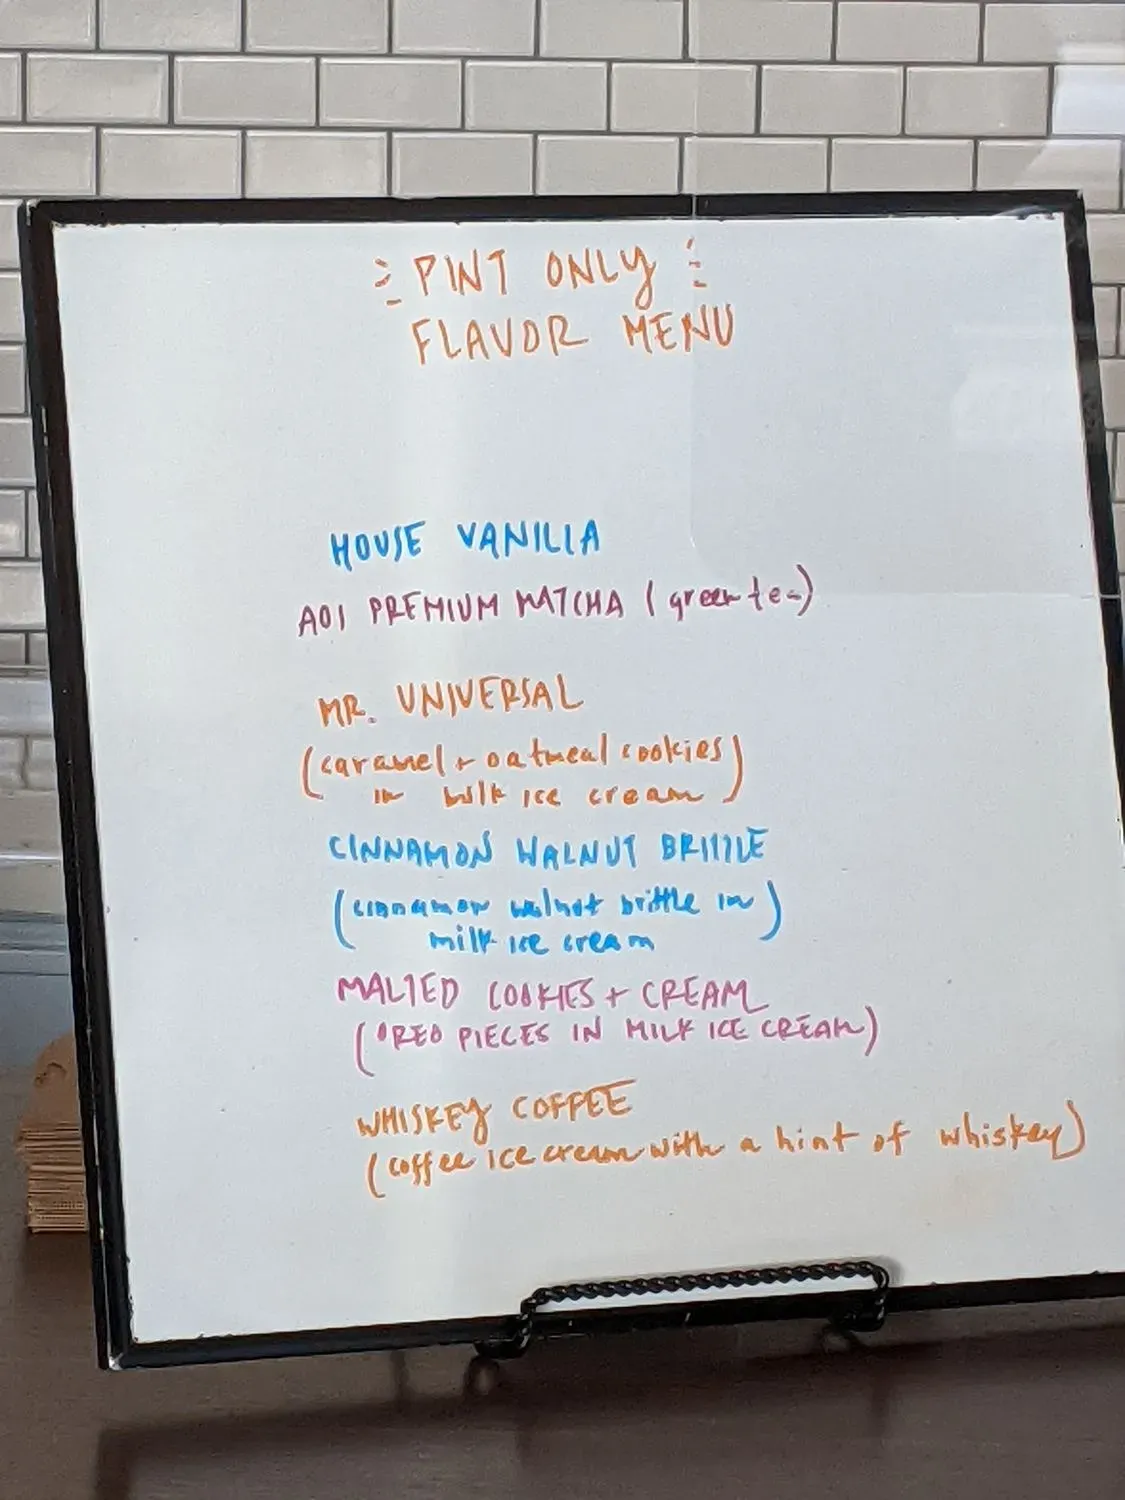 PINT ONLY
FLAVOR MENU
HOUSE VANILLA
AOI PREMIUM MATCHA (green tea)
MR. UNIVERSAL
(caramel + oatmeal cookies
in milk ice cream)
CINNAMON WALNUT BRITTLE
(cinnamon walnut brittle in
milk ice cream)
MALTED COOKIES + CREAM
(OREO PIECES IN MILK ICE CREAM)
WHISKEY COFFEE
(coffee ice cream with a hint of whiskey)